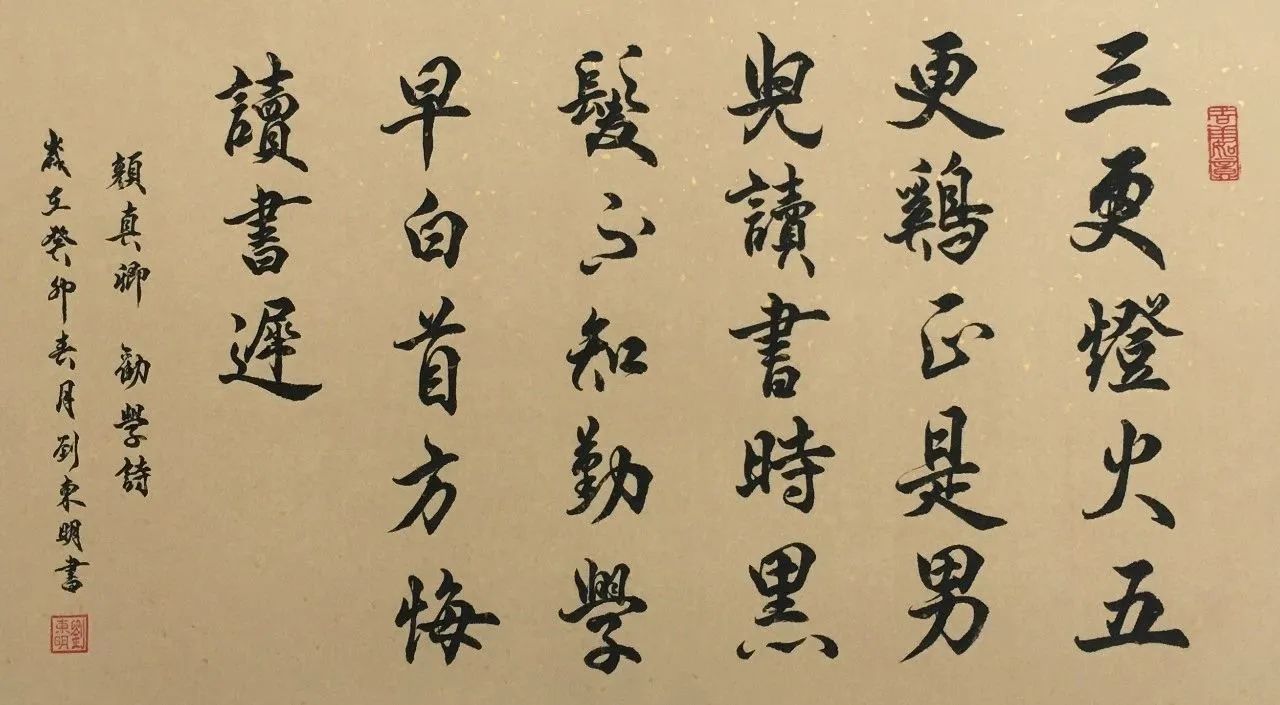 三更燈火五
更鷄正是男
兒讀書時黑
髮不知勤學
早白首方悔
讀書遲
顏真卿 勸學詩
歲在癸卯春月劉東明書
劉東明